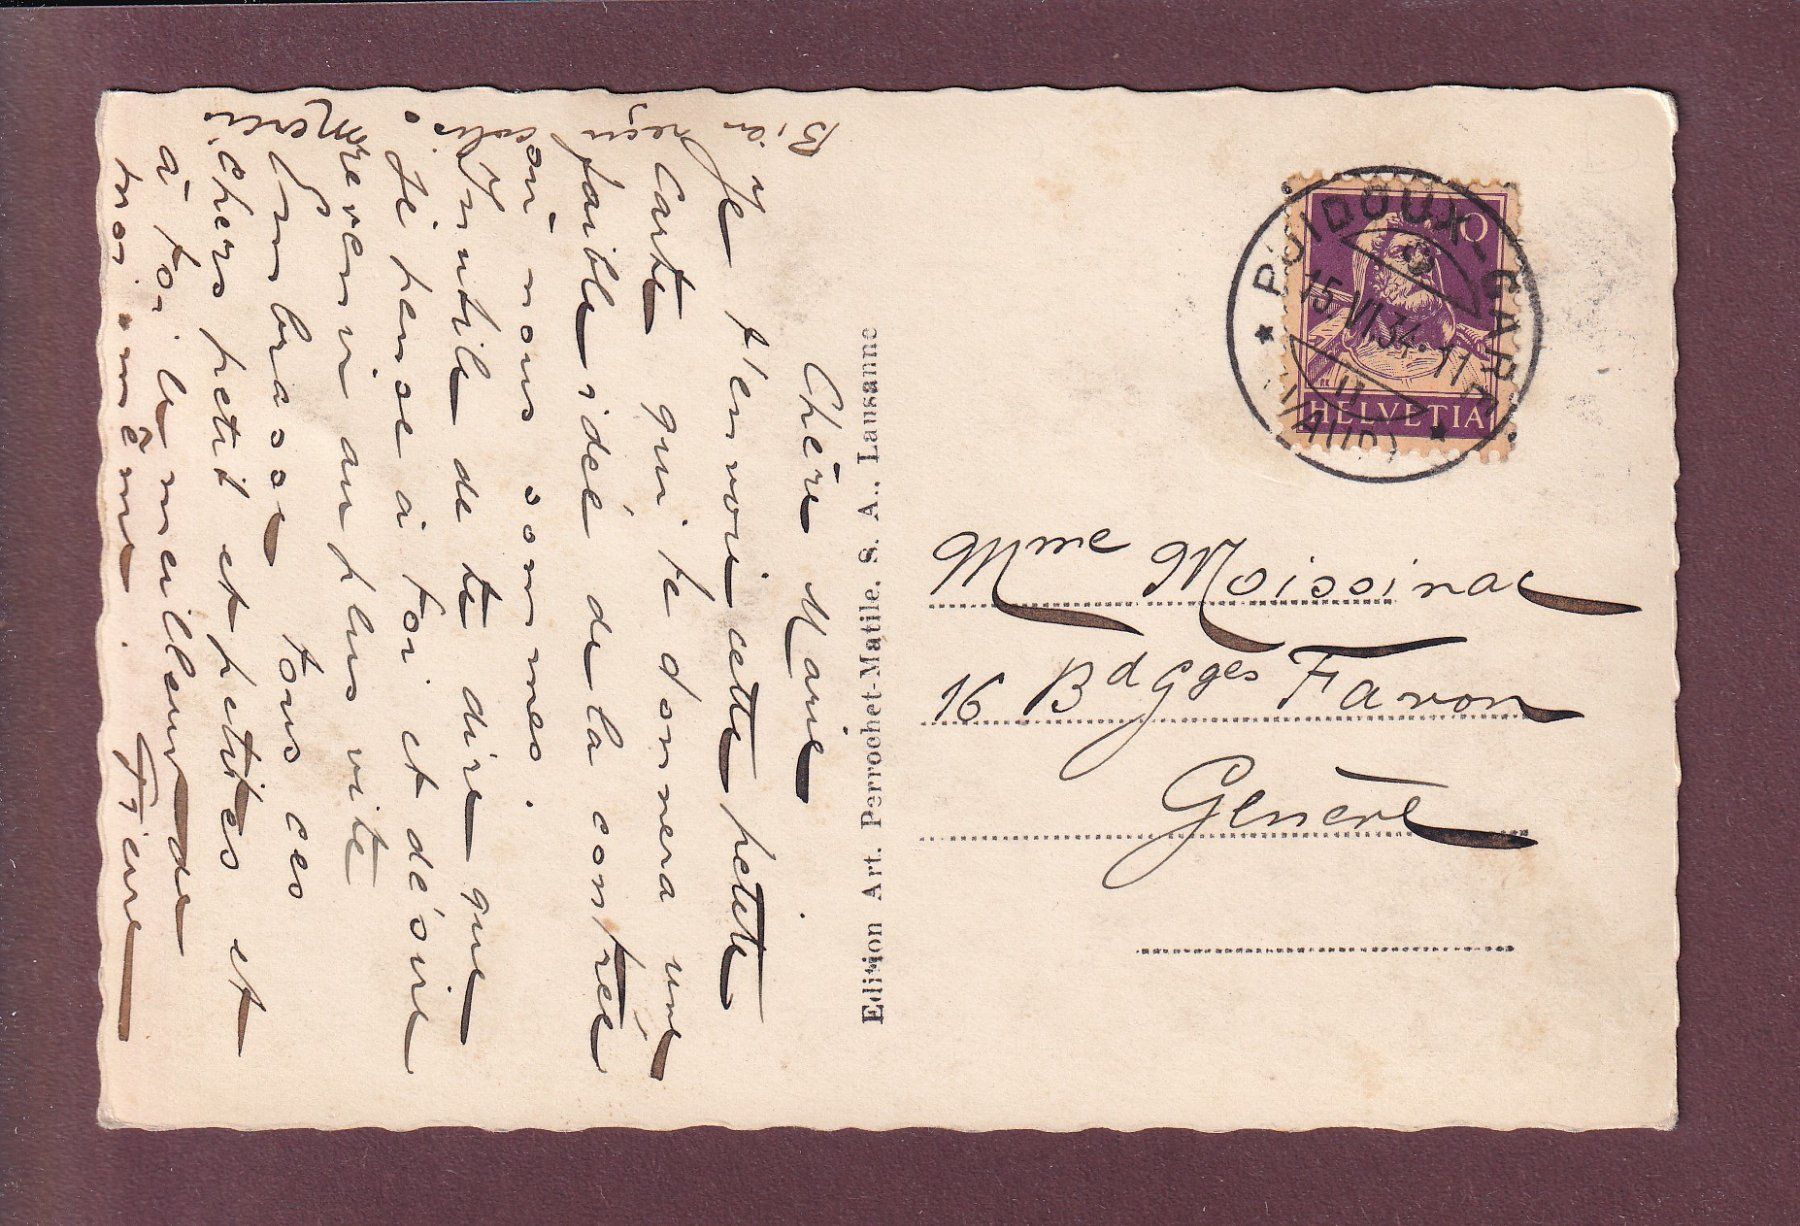 Bien reçu colis. Merci.
Chère Marie
Je t'envoie cette petite
carte qui te donnera une
faible idée de la contrée
où nous sommes.
Inutile de te dire que
je pense à toi et désire
revenir au plus vite
Embrasse tous ces
chers petits et petites et
à toi le meilleur de
moi-même.
Edition Art. Perrochet-Matile. S. A., Lausanne
PUIDOUX-GARE
15.VI.34.11
(VAUD)
10
HELVETIA
Mme Moissinac
16 Bd Gges Favon
Genève